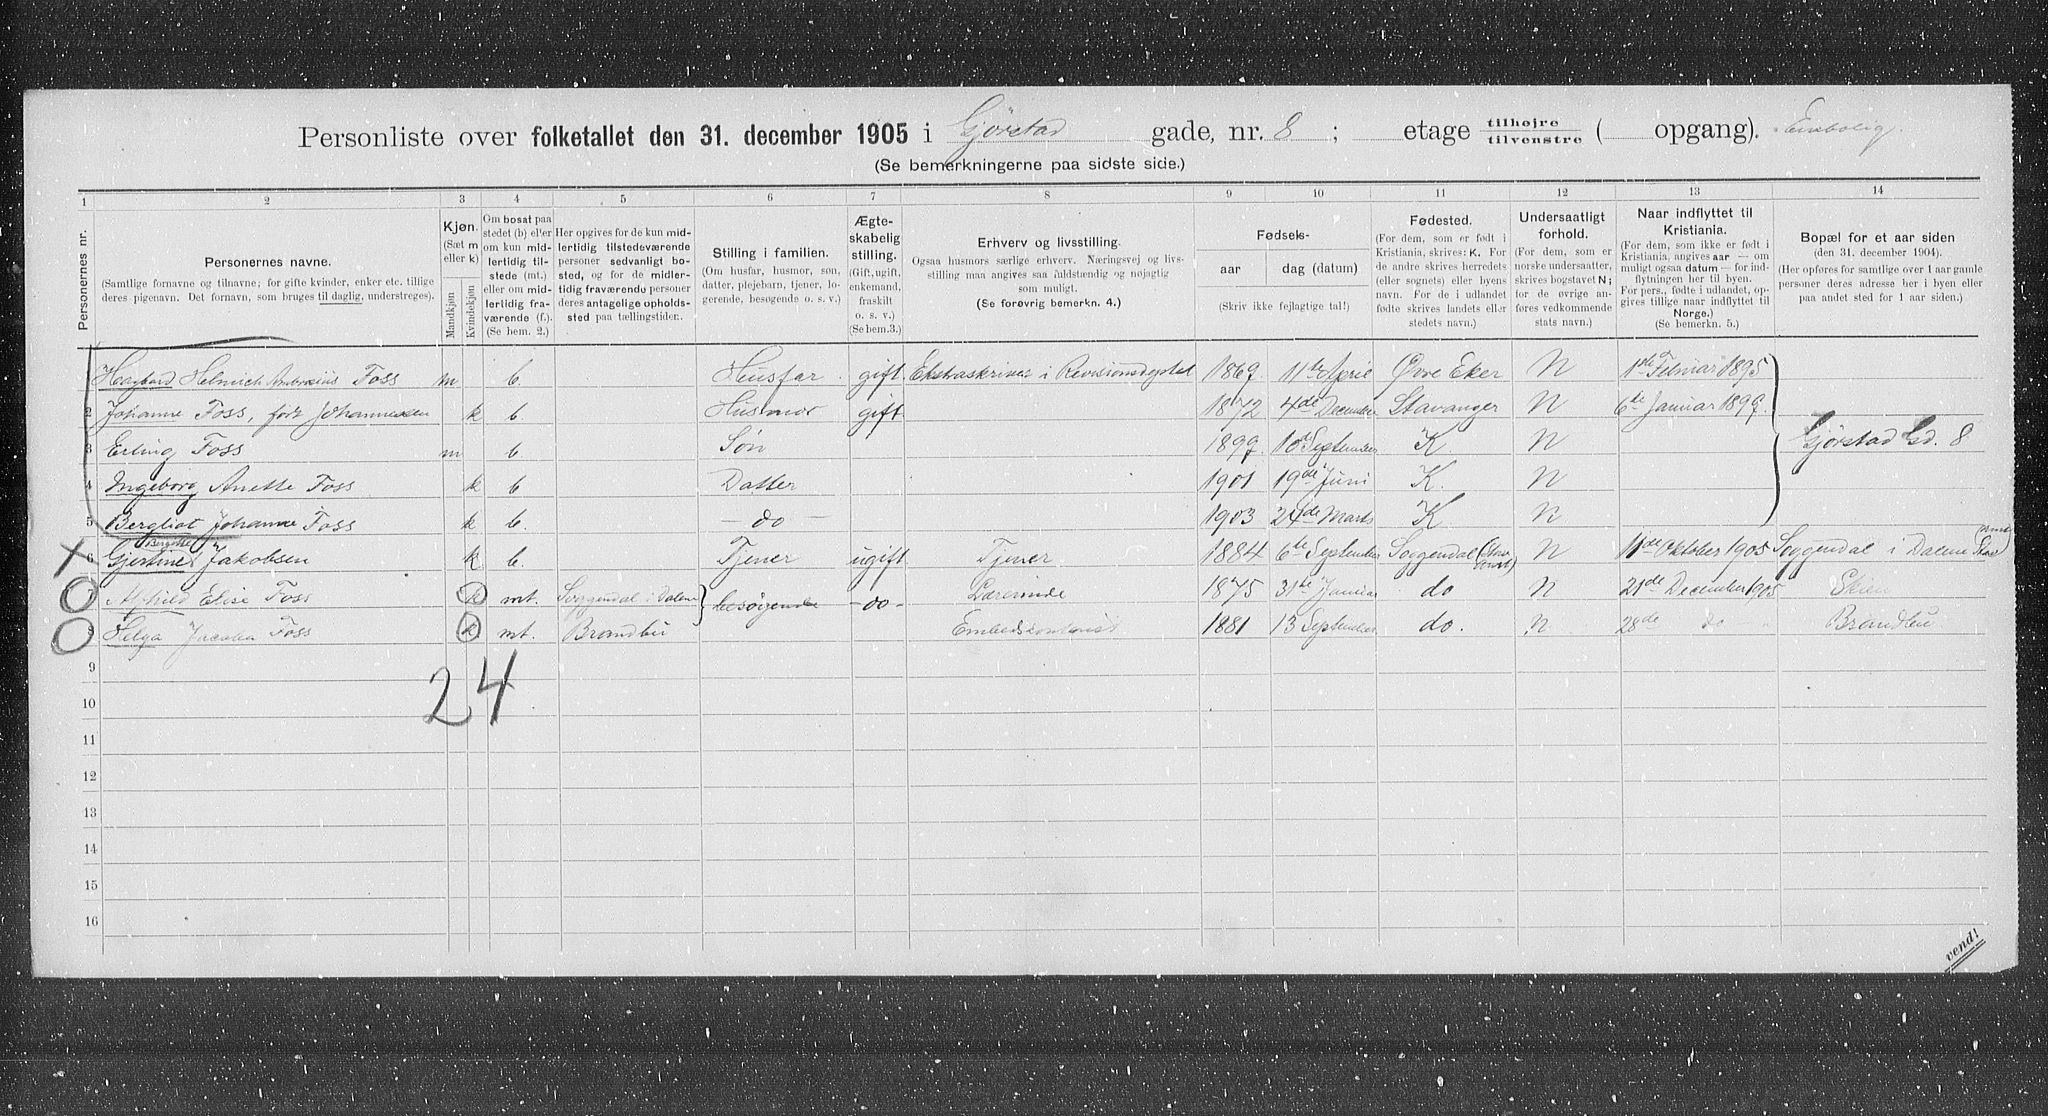 Personliste over folketallet den 31. december 1905 i Gjørstad gade, nr. 8 ; etage tilhøjre / tilvenstre ( opgang). Enebolig.
(Se bemerkningerne paa sidste side.)
1 2 3 4 5 6 7 8 9 10 11 12 13 14
Personernes nr.
Personernes navne.
(Samtlige fornavne og tilnavne; for gifte kvinder, enker etc. tillige
deres pigenavn. Det fornavn, som bruges til daglig, understreges).
Kjøn.
(Sæt m
eller k)
Mandkjøn
Kvindekjøn
Om bosat paa
stedet (b) eller
om kun mid-
lertidig til-
stede (mt.)
eller om mid-
lertidig fra-
værende (f.).
(Se bem. 2.)
Her opgives for de kun mid-
lertidig tilstedeværende
personer sedvanlig bo-
sted, og for de midler-
tidig fraværende personer
deres antagelige opholds-
sted paa tællingstiden.
Stilling i familien.
(Om husfar, husmor, søn,
datter, plejebarn, tjener, lo-
gerende, besøgende o. s. v.)
Ægte-
skabelig
stilling.
(Gift, ugift,
enkemand,
fraskilt
o. s. v.)
(Se bem.3.)
Erhverv og livsstilling.
Ogsaa husmors særlige erhverv. Næringsvej og livs-
stilling maa angives saa fuldstændig og nøjagtig
som muligt.
(Se forøvrig bemerkn. 4.)
Fødsels-
aar dag (datum)
(Skriv ikke fejlagtige tal!)
Fødested.
(For dem, som er født i
Kristiania, skrives: K. For
de andre skrives herredets
(eller sognets) eller byens
navn. For de i udlandet
fødte skrives landets eller
stedets navn.)
Undersaatligt
forhold.
(For dem, som er
norske undersaatter,
skrives bogstavet N;
for de øvrige an-
føres vedkommende
stats navn.)
Naar indflyttet til
Kristiania.
(For dem, som ikke er født i
Kristiania, angives aar — om
muligt ogsaa datum — for ind-
flytningen her til byen.
For pers., fødte i udlandet, op-
gives tillige naar indflyttet til
Norge.)
(Se bemerkn. 5.)
Bopæl for et aar siden
(den 31. december 1904).
(Her opføres for samtlige over 1 aar gamle
personer deres adresse her i byen eller
paa andet sted for 1 aar siden.)
Hagbard Helmich Ambrosius Foss m b. Husfar gift Ekstraskriver i Revisionsdeptet 1869. 11te April Øvre Eker N 1ste Februar 1895
2 Johanne Foss, født Johannessen k b Husmor gift 1872 4de December Stavanger N 6te Januar 1899.
3 Erling Foss m b. Søn 1899. 10de September K N Gjørstad Gd. 8
4 Ingeborg Anette Foss k b Datter 1901 19de Juni K. N
5 Bergliot Johanne Foss k b. — do — 1903 24de Marts K N
6 Gjertine Bergitte Jakobsen k b. Tjener ugift Tjener 1884 6te September Soggendal (Stav. amt) N 11de Oktober 1905 Soggendal i Dalene (Stav. amt)
7 Alfhild Elise Foss k mt. Soggendal i Dalene besøgende - do - Lærerinde 1875 31te Januar do N 21de December 1905 Skien
8 Helga Jacoba Foss k mt. Brandbu 1881 13 September do. N 28de do Brandbu
24
9
10
11
12
13
14
15
16
vend!